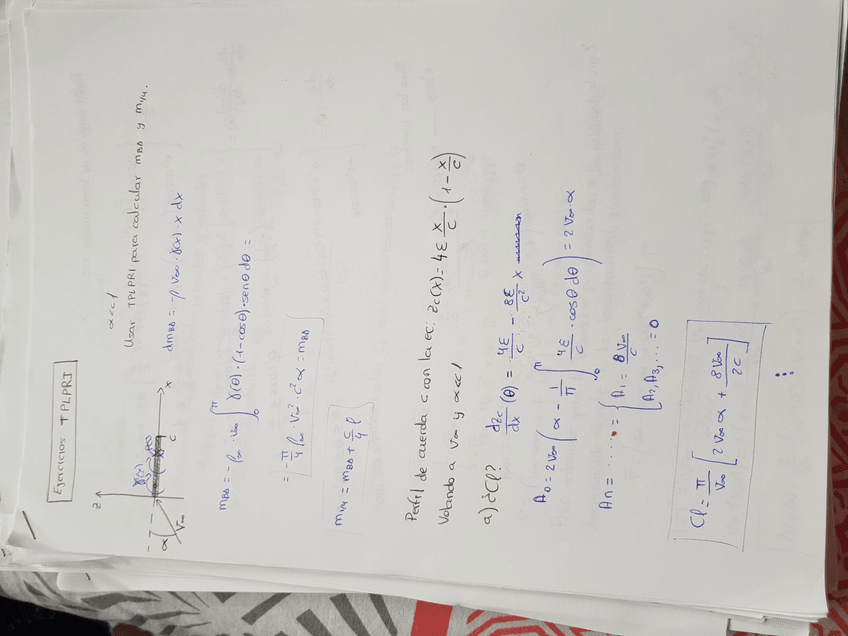 Ejercicios TPLPRI
α<<1
Usar TPLPRI para calcular m_BA y m_1/4.
z
x
c
α
V∞
γ(x)
dm_BA = -ρ V∞·γ(x)·x dx
m_BA = -ρ∞·V∞ ∫_0^π γ(θ)·(1-cosθ)·senθ dθ =
= -π/4 ρ∞·V∞²·c² α = m_BA
m_1/4 = m_BA + c/4 l
Perfil de cuerda c con la ec. z_c(x) = 4ε x/c·(1-x/c)
Volando a V∞ y α<<1
a) ¿Cl?
dz_c/dx (θ) = 4ε/c - 8ε/c² x
A_0 = 2V∞ (α - 1/π ∫_0^π 4ε/c·cosθ dθ) = 2V∞ α
An = ...... = { A_1 = 8V∞/c
A_2, A_3, ... = 0
Cl = π/V∞ [2V∞ α + 8V∞/2c]
⋮